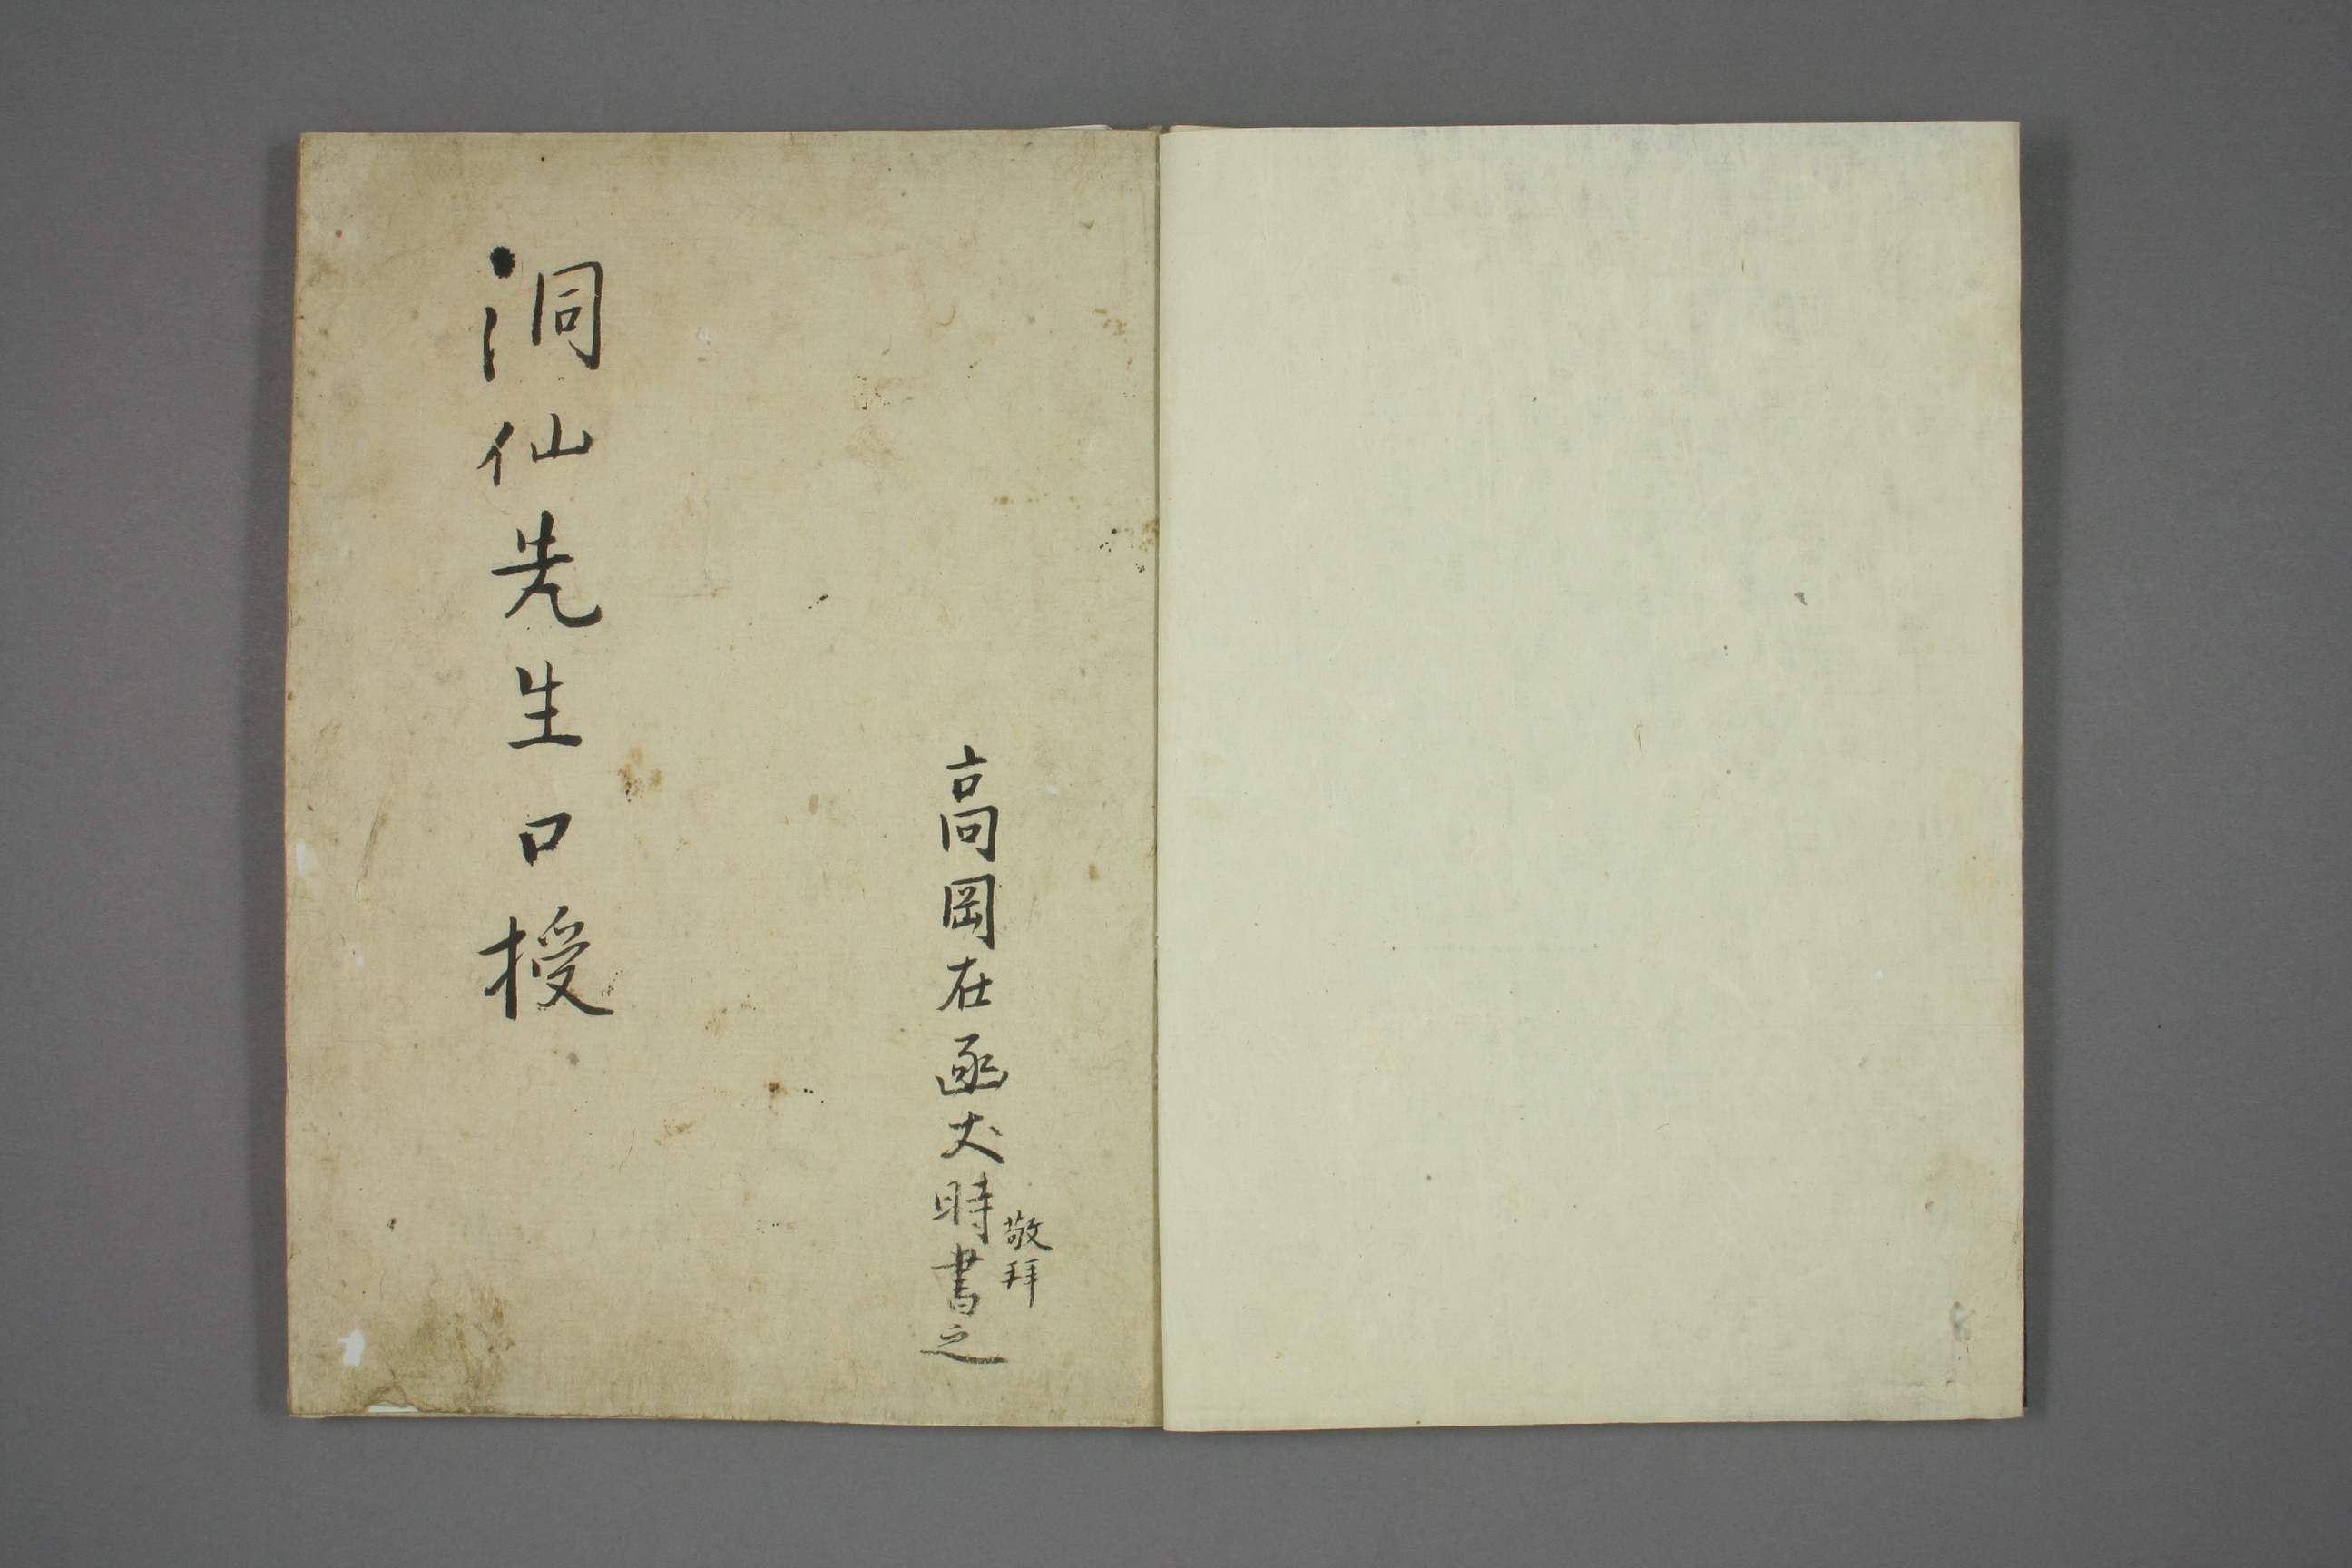 高岡在凾丈時書之
敬拝
洞仙先生口授